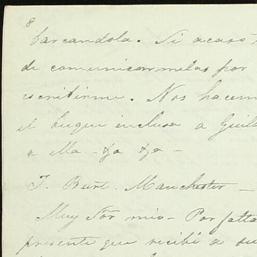 8
barcandola. Si acaso
de comunicarmelas por
escribirme. Nos hacem
el buque inclusa a Guill
a Ma - &a &a -
J. Burt. Manchester -
Muy Sor mio - Por falta
presente que recibí a su